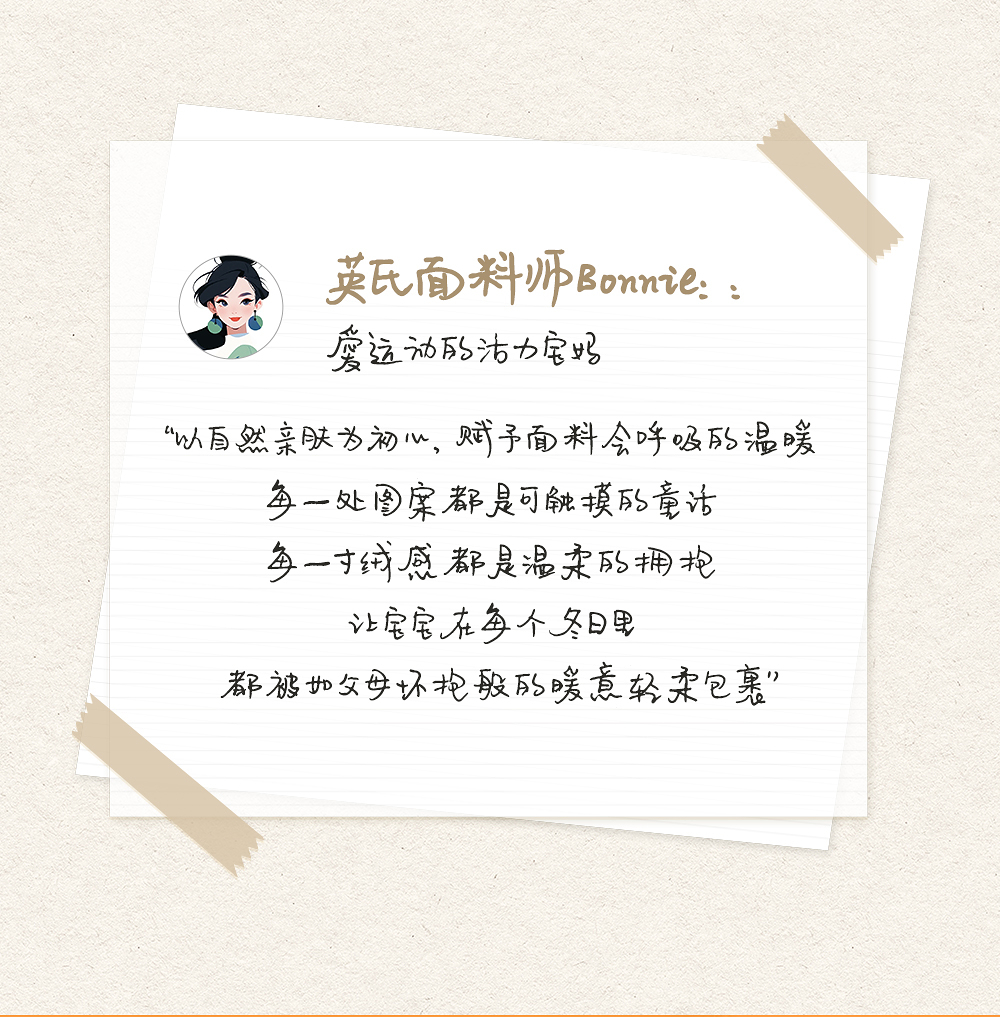 英氏面料师Bonnie: :
爱运动的活力宝妈
“以自然亲肤为初心, 赋予面料会呼吸的温暖
每一处图案都是可触摸的童话
每一寸绒感都是温柔的拥抱
让宝宝在每个冬日里
都被如父母怀抱般的暖意轻柔包裹”